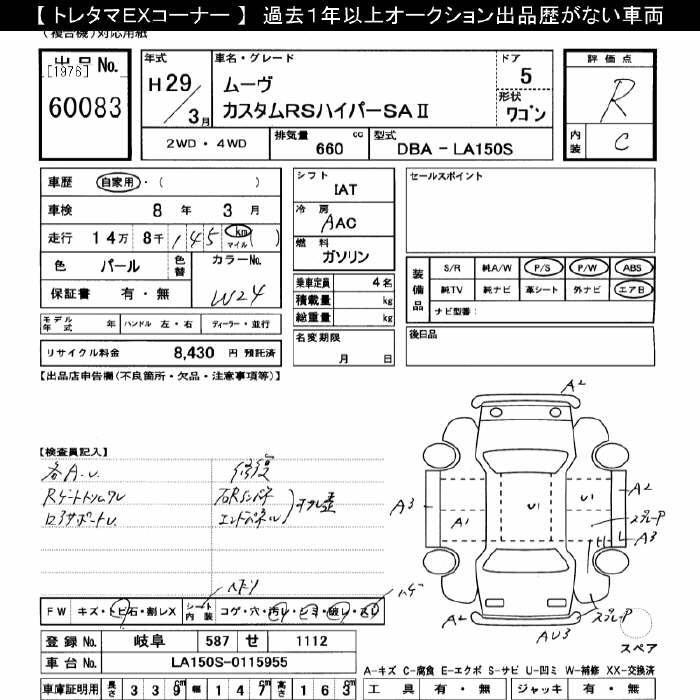 【 トレタマEXコーナー 】 過去1年以上オークション出品歴がない車両
(複合機)対応用紙
出品No.
[1976]
60083
年式
H29/3月
車名・グレード
ムーヴ
カスタムRSハイパーSAⅡ
ドア
5
形状
ワゴン
2WD・4WD
排気量 660 cc
型式 DBA - LA150S
評価点
R
内装
C
車歴 自家用・( )
車検 8 年 3 月
走行 14万 8千 145 km マイル ( )
色 パール 色替
カラーNo.
W24
保証書 有・無
モデル年式 年 ハンドル 左・右 ディーラー・並行
リサイクル料金 8,430 円 預託済
シフト
IAT
冷房
AAC
燃料
ガソリン
乗車定員 4 名
積載量 kg
総重量 kg
名変期限
月 日
セールスポイント
装備品
S/R 純A/W P/S P/W ABS
純TV 純ナビ 革シート 外ナビ エアB
ナビ型番:
後日品
【出品店申告欄(不良箇所・欠品・注意事項等)】
【検査員記入】
各A.U.
修復
エンドパネル
A2
A3
A1
U1
U1
A2
スプレーP
A3
スプレーP
A2
AU3
スペア
FW キズ・トビ石・割レX
シート内装 コゲ・穴・汚レ・シミ・破レ・スレ
登録 No. 岐阜 587 せ 1112
車台 No. LA150S-0115955
車庫証明用 長さ 339cm 幅 147cm 高さ 163cm
A-キズ C-腐食 E-エクボ S-サビ U-凹ミ W-補修 XX-交換済
工具 有・無 ジャッキ 有・無